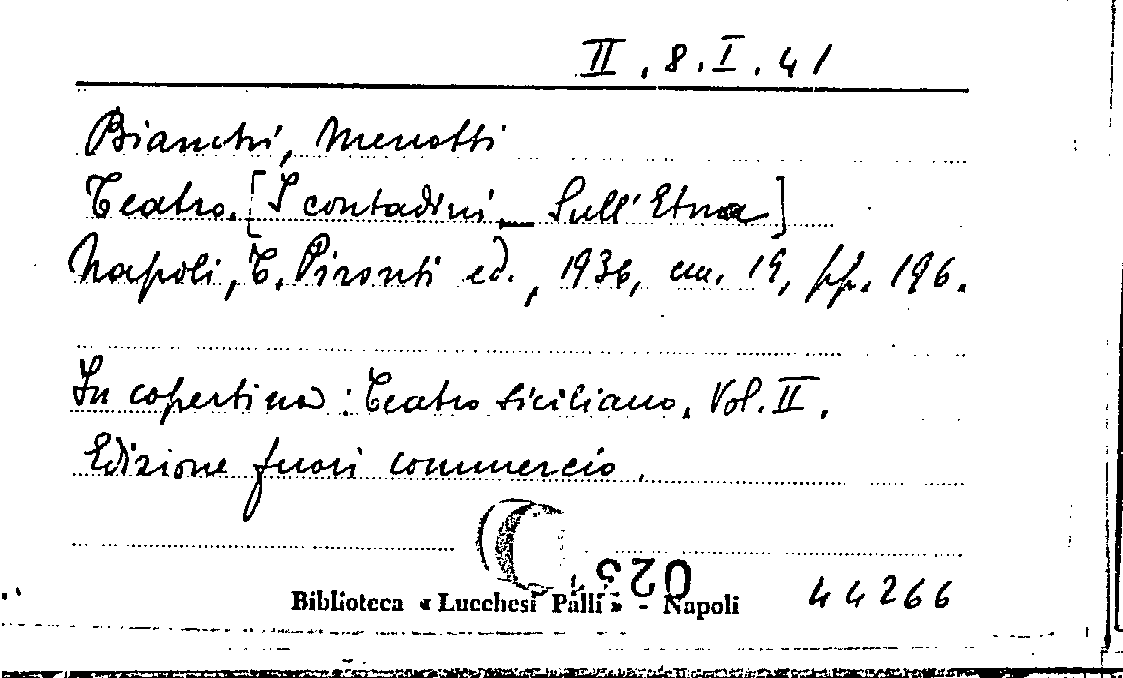 II. 8. I. 41
Bianchi, Menotti
Teatro. [I contadini _ Sull'Etna]
Napoli, T. Pironti ed., 1936, cm. 19, pp. 196.
In copertina: Teatro siciliano. Vol. II.
Edizione fuori commercio.
Biblioteca « Lucchesi Palli » - Napoli 44266